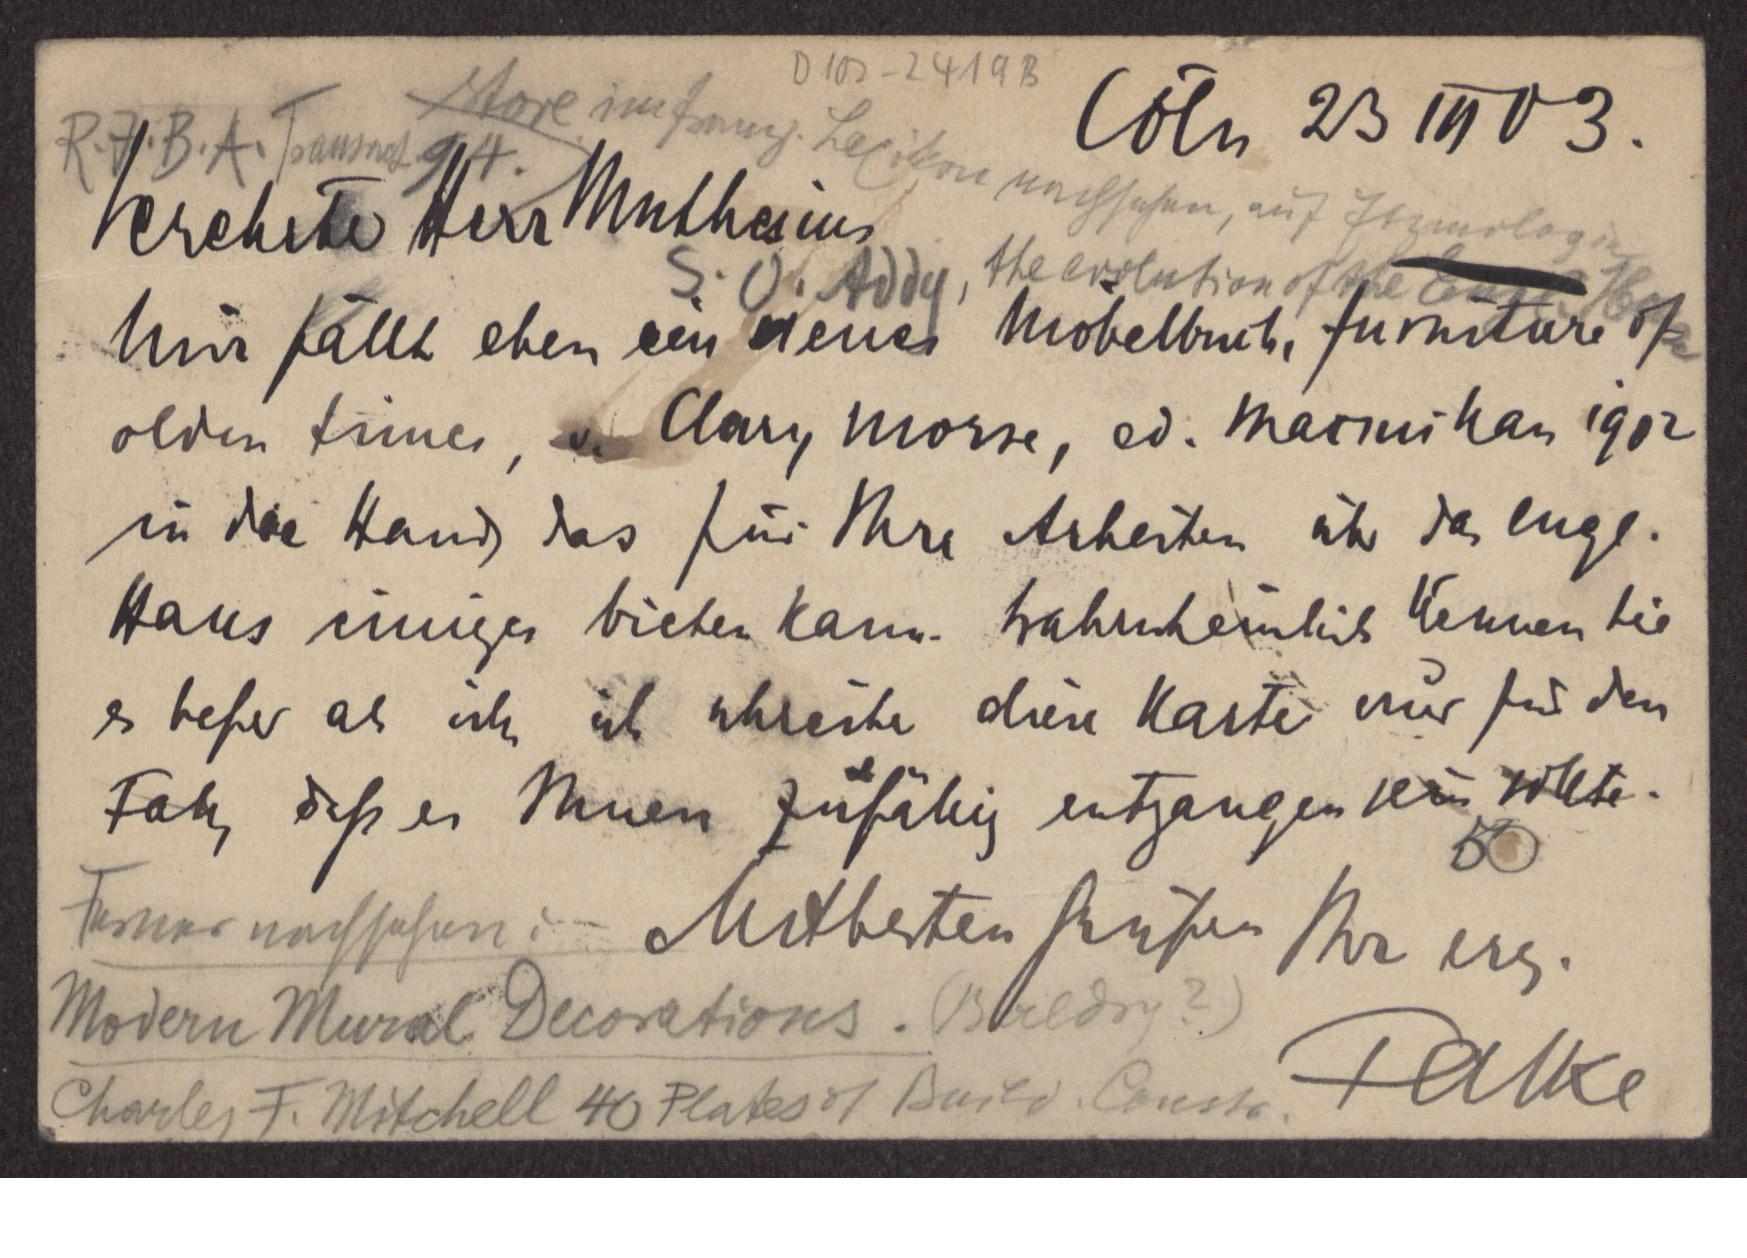 D 102-2419 B
Cöln 23 III 03.
Store im franz. Lexikon nachsehen, auf Etymologie
R.I.B.A. Transact 94.
Verehrter Herr Muthesius
S. O. Addy, the evolution of the Engl. House
Mir fällt eben ein neues Möbelbuch, furniture of
olden times, v. Clary Morse, ed. Macmillan 1902
in die Hand, das für Ihre Arbeiten üb das engl.
Haus einiges bieten kann. Wahrscheinlich kennen Sie
es beßer als ich, ich schreibe diese Karte nur für den
Fall, daß es Ihnen zufällig entgangen sein sollte.
50
Mit besten Grüßen Ihr erg.
Falke
Ferner nachsehen :
Modern Mural Decorations. (Baldry?)
Charles F. Mitchell 40 Plates of Build. Constr.